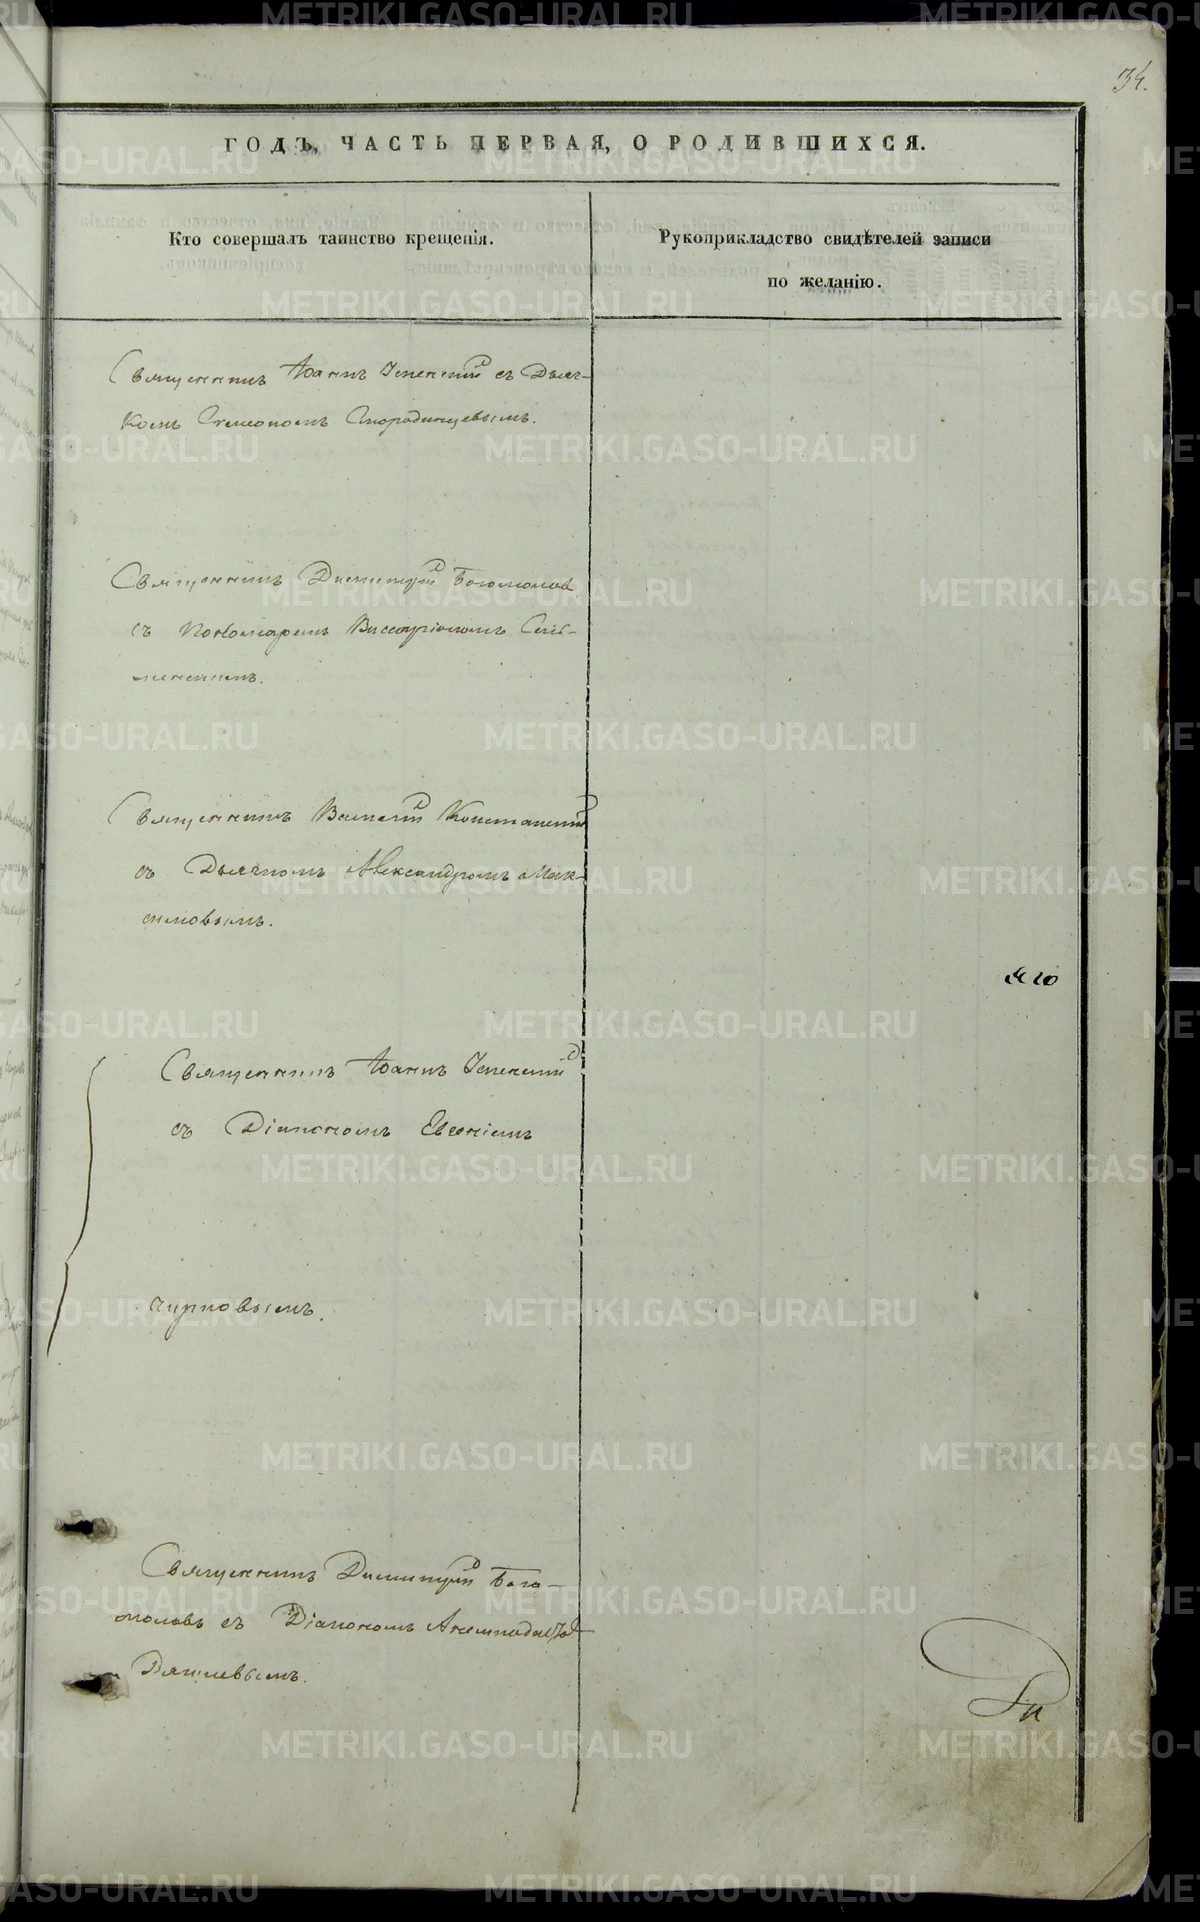 34.
ГОДЪ, ЧАСТЬ ПЕРВАЯ, О РОДИВШИХСЯ.
Кто совершалъ таинство крещенія.
Рукоприкладство свидѣтелей записи
по желанію.
Священникъ Іоаннъ Успенскій съ Дьяч-
комъ Симеономъ Смородинцевымъ.
Священникъ Димитрій Богомоловъ
съ Пономаремъ Виссаріономъ
Священникъ Василій
съ Дьячкомъ Александромъ Мак-
симовымъ.
Священникъ Іоаннъ Успенскій
съ Діакономъ Евгеніемъ
Священникъ Димитрій Бого-
моловъ съ Діакономъ
METRIKI.GASO-URAL.RU